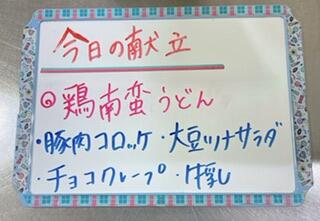 今日の献立
◎鶏南蛮うどん
・豚肉コロッケ・大豆ツナサラダ
・チョコクレープ・牛乳